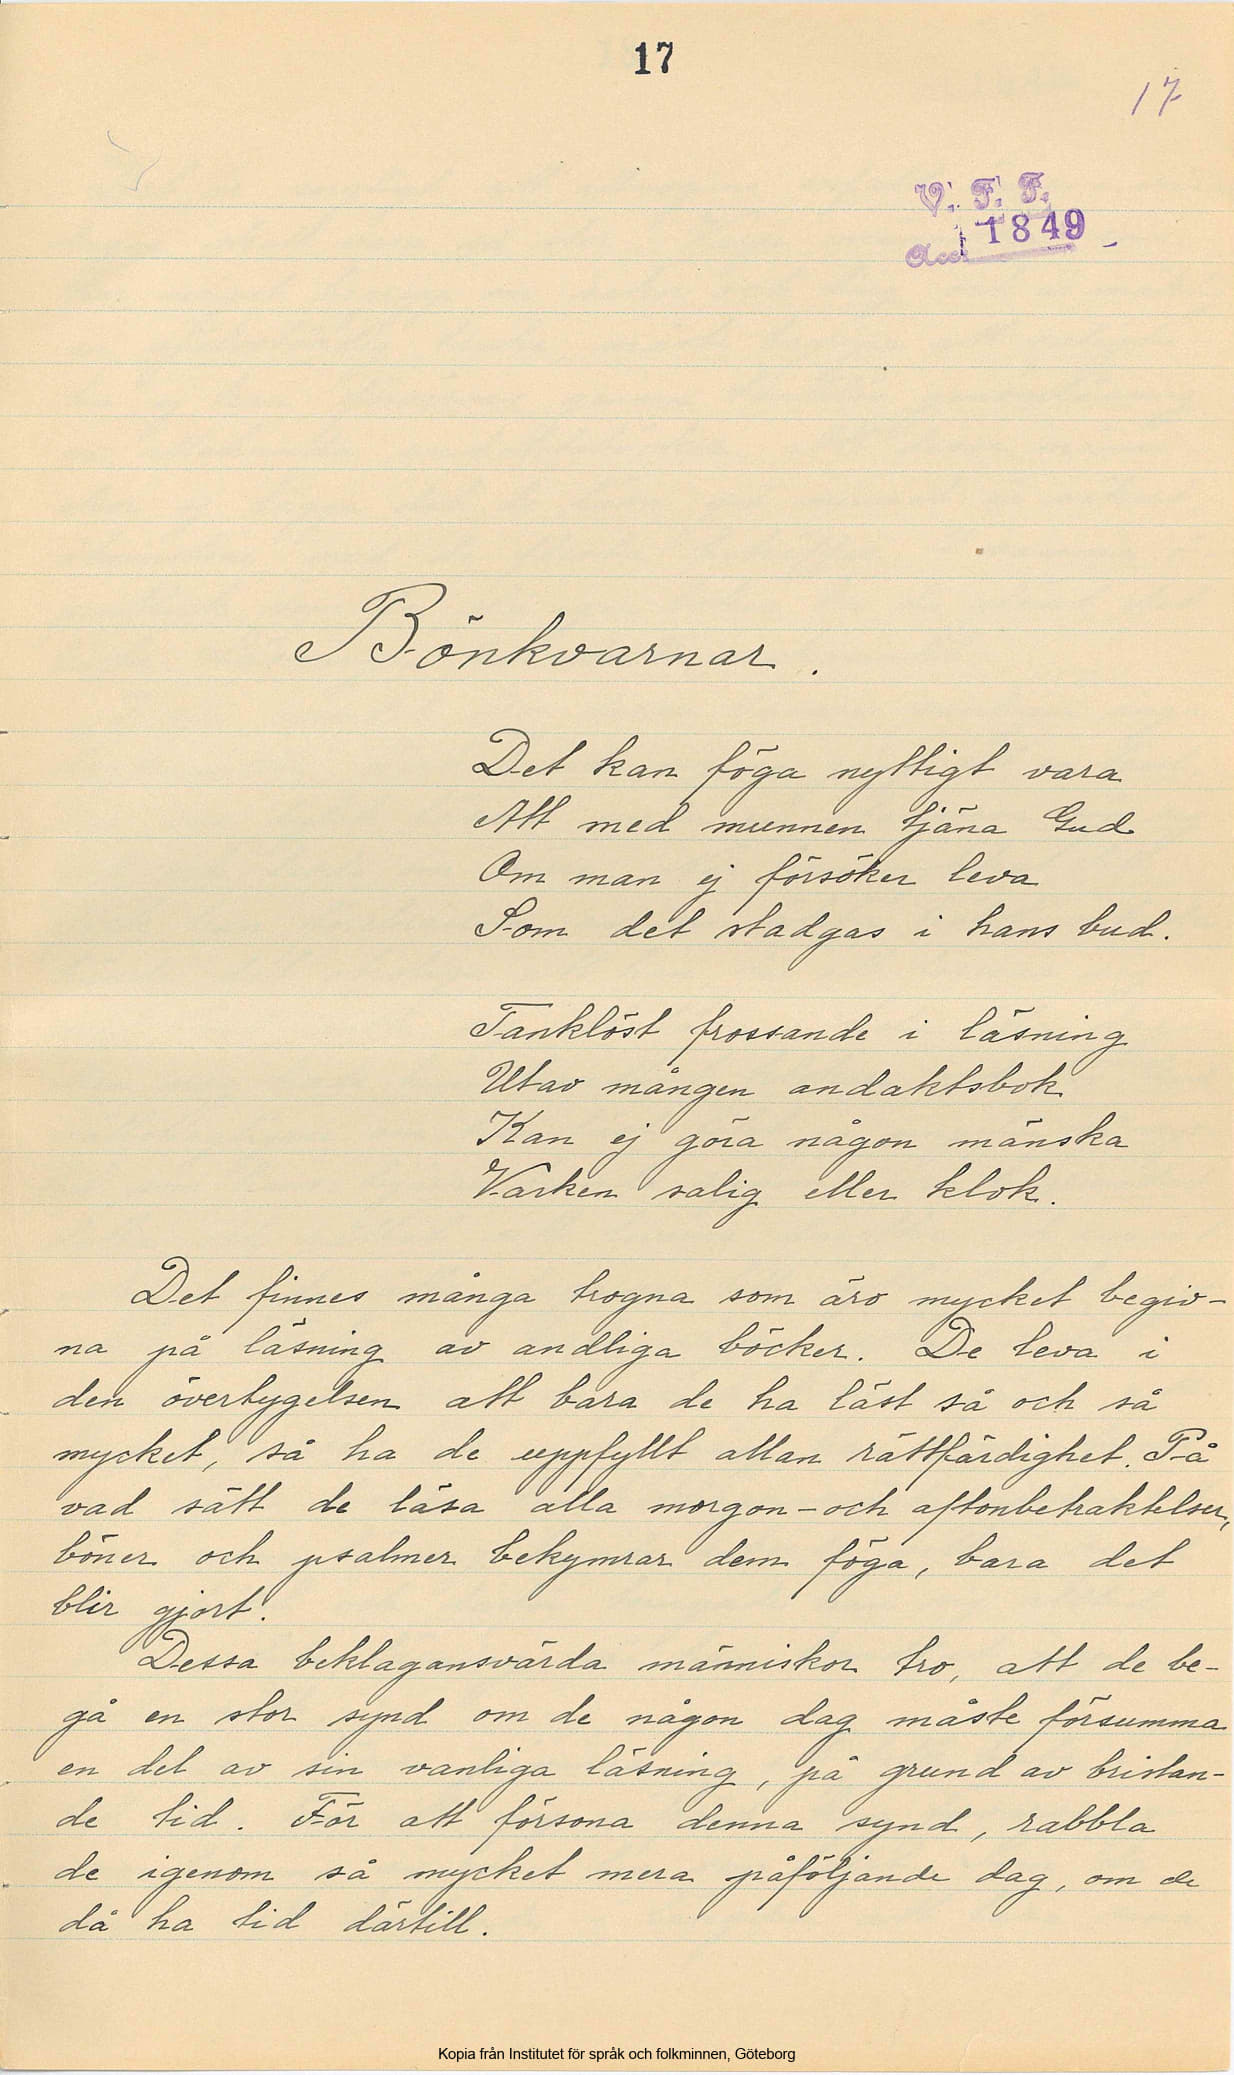 17
17
V. F. F.
Acc. 1849
Bönkvarnar.
Det kan föga nyttigt vara
Att med munnen tjäna Gud
Om man ej försöker leva
Som det stadgas i hans bud.
Tanklöst frossande i läsning
Utav mången andaktsbok
Kan ej göra någon mänska
Varken salig eller klok.
Det finnes många trogna som äro mycket begiv-
na på läsning av andliga böcker. De leva i
den övertygelsen att bara de ha läst så och så
mycket, så ha de uppfyllt allan rättfärdighet. På
vad sätt de läsa alla morgon- och aftonbetraktelser,
böner och psalmer bekymrar dem föga, bara det
blir gjort.
Dessa beklagansvärda människor tro, att de be-
gå en stor synd om de någon dag måste försumma
en del av sin vanliga läsning, på grund av bristan-
de tid. För att försona denna synd, rabbla
de igenom så mycket mera påföljande dag, om de
då ha tid därtill.
Kopia från Institutet för språk och folkminnen, Göteborg